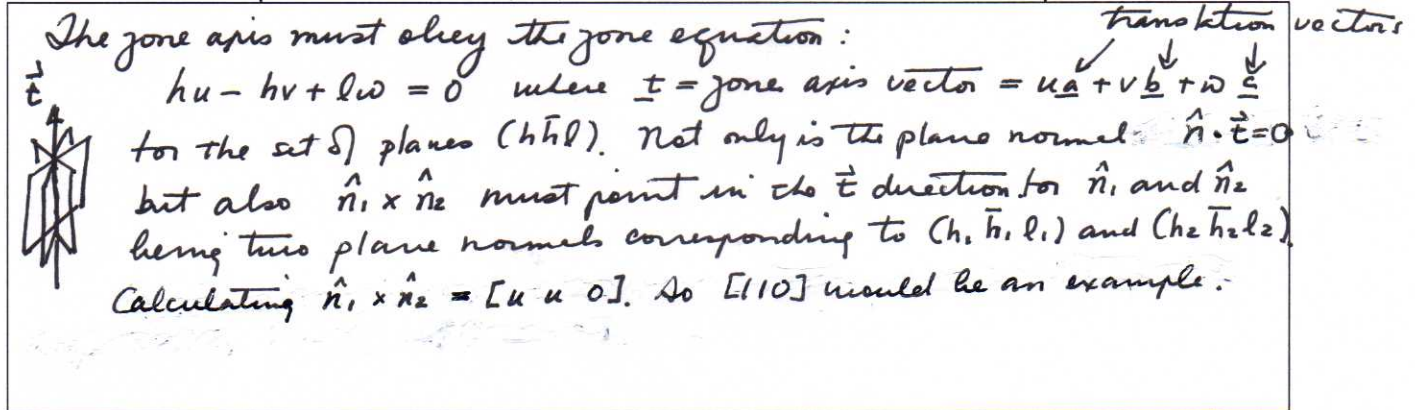 The zone axis must obey the zone equation:
translation vectors
hu - hv + lw = 0 where t̲ = zone axis vector = ua̲ + vb̲ + wc̲
t⃗
for the set of planes (hh̄l). Not only is the plane normal n̂·t⃗=0
but also n̂₁ x n̂₂ must point in the t⃗ direction for n̂₁ and n̂₂
being two plane normals corresponding to (h₁ h̄₁ l₁) and (h₂ h̄₂ l₂).
Calculating n̂₁ x n̂₂ = [u u 0]. So [110] would be an example.